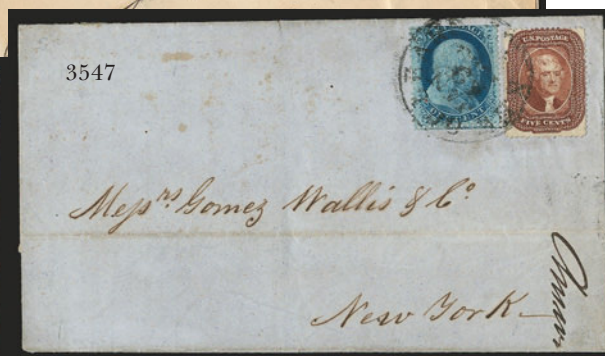 3547
U.S. POSTAGE
FIVE CENTS
Messrs Gomez Wallis & Co
New York